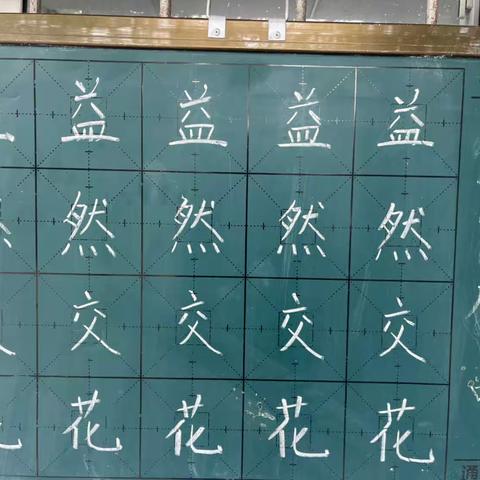 益 益 益 益
然 然 然 然
交 交 交 交
花 花 花 花